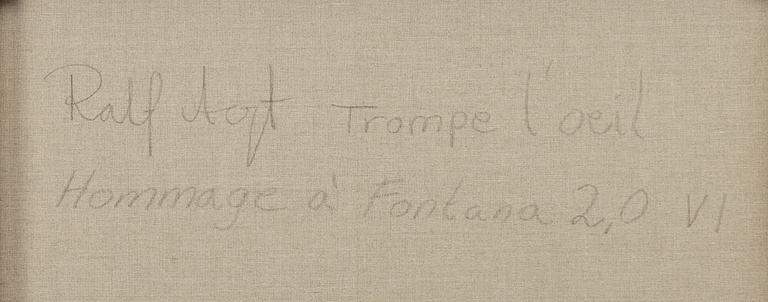 Ralf Trompe l'oeil
Hommage à Fontana 2,0 VI